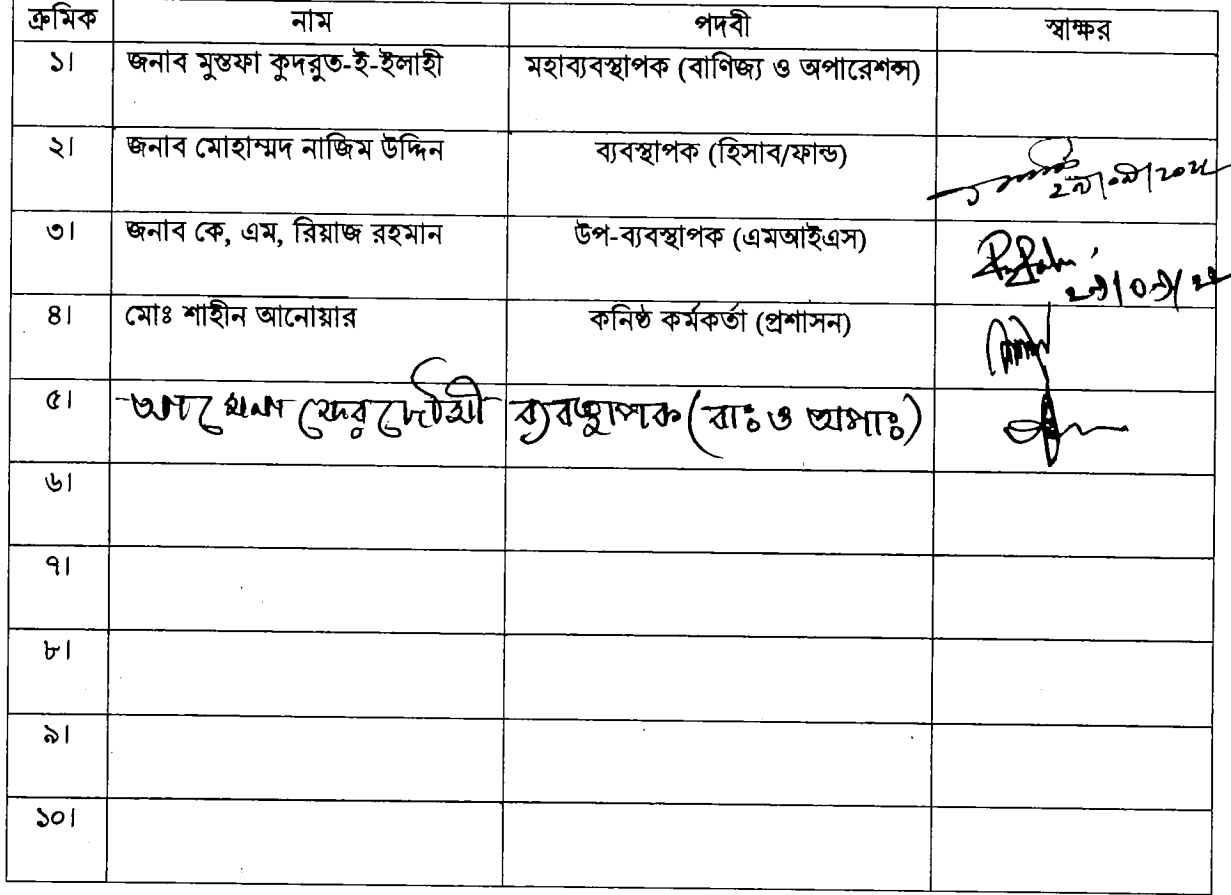 ক্রমিক নাম পদবী স্বাক্ষর
১। জনাব মুস্তফা কুদরুত-ই-ইলাহী মহাব্যবস্থাপক (বাণিজ্য ও অপারেশন্স)
২। জনাব মোহাম্মদ নাজিম উদ্দিন ব্যবস্থাপক (হিসাব/ফান্ড)
৩। জনাব কে, এম, রিয়াজ রহমান উপ-ব্যবস্থাপক (এমআইএস)
৪। মোঃ শাহীন আনোয়ার কনিষ্ঠ কর্মকর্তা (প্রশাসন)
৫। ব্যবস্থাপক (বাঃ ও অপাঃ)
৬।
৭।
৮।
৯।
১০।